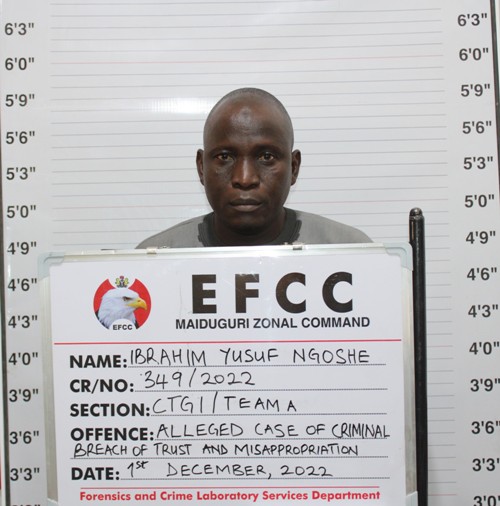 6'3"
6'0"
5'9"
5'6"
5'3"
5'0"
4'9"
4'6"
4'3"
4'0"
3'9"
3'6"
3'3"
6'3"
6'0"
5'9"
5'6"
5'3"
5'0"
4'9"
4'6"
4'3"
4'0"
3'9"
3'6"
3'3"
3'0"
EFCC
EFCC
MAIDUGURI ZONAL COMMAND
NAME: IBRAHIM YUSUF NGOSHE
CR/NO: 349/2022
SECTION: CTGI/TEAM A
OFFENCE: ALLEGED CASE OF CRIMINAL
BREACH OF TRUST AND MISAPPROPRIATION
DATE: 1ST DECEMBER, 2022
Forensics and Crime Laboratory Services Department